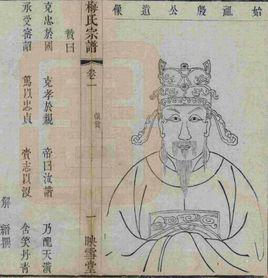 始祖殷公遺像
梅氏宗譜
卷一
像贊
一
映雪堂
贊曰
克忠於國 克孝於親 帝曰汝諧 乃天漢
承受密詔 篤以忠貞 賚志以沒 含笑丹青
解縉撰